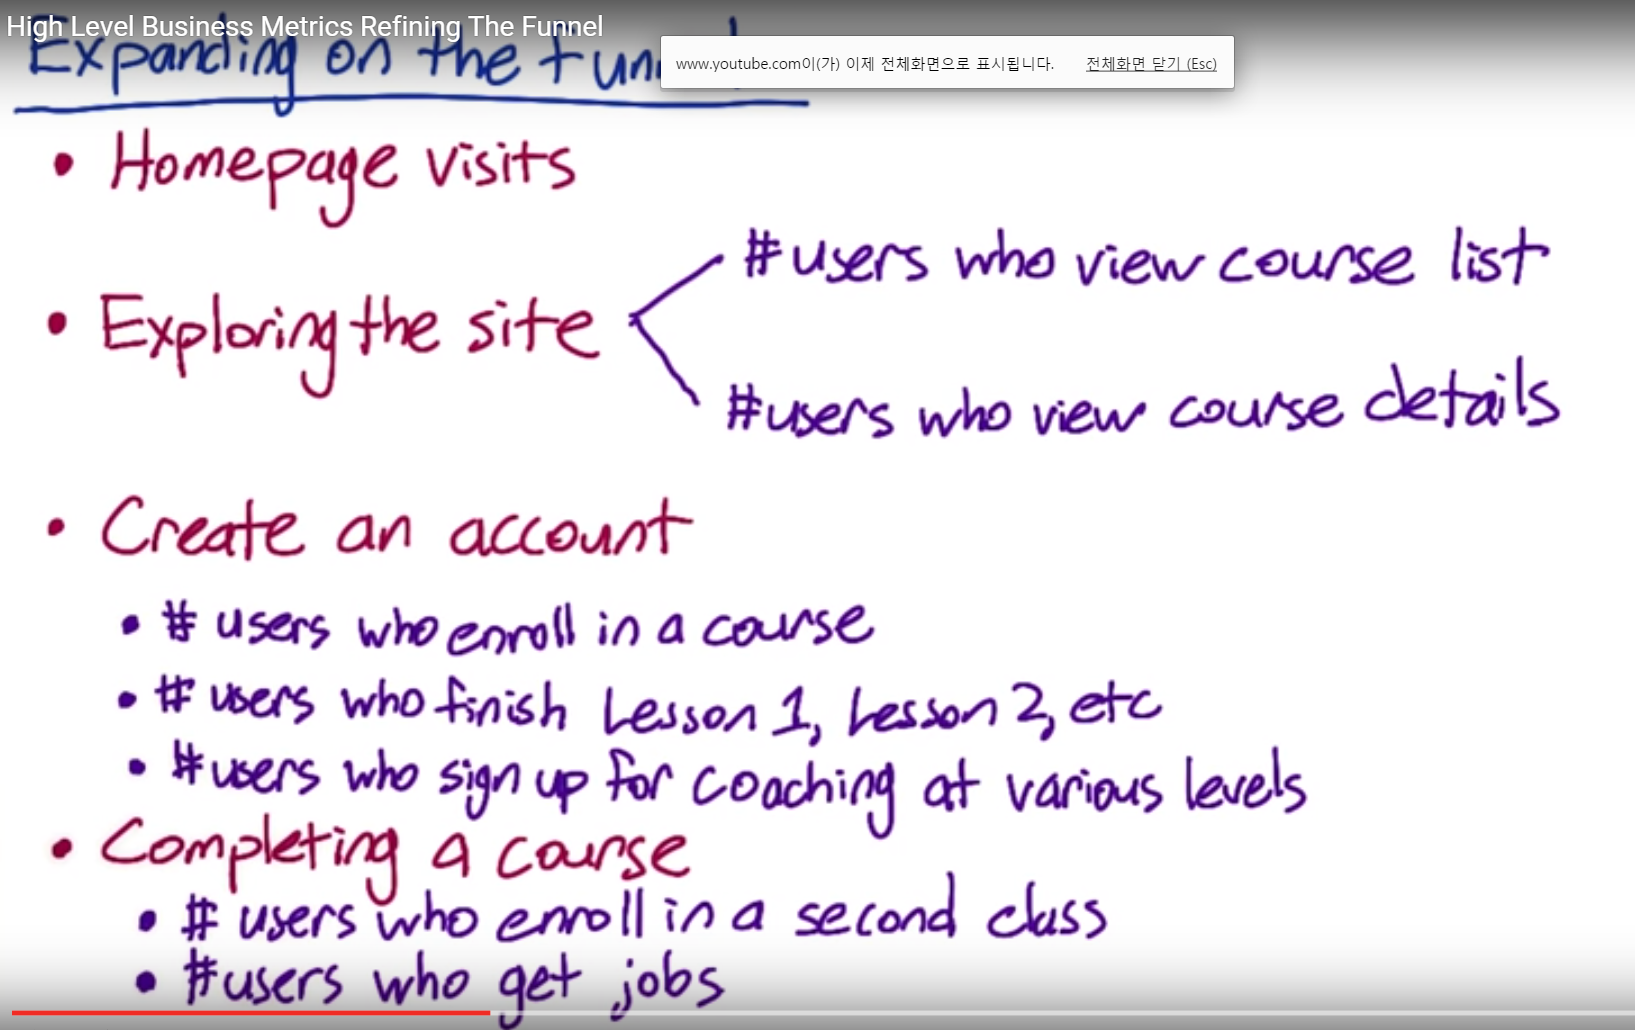 High Level Business Metrics Refining The Funnel
Expanding on the Fun
www.youtube.com이(가) 이제 전체화면으로 표시됩니다. 전체화면 닫기 (Esc)
• Homepage visits
• Exploring the site
#users who view course list
#users who view course details
• Create an account
• # users who enroll in a course
• # users who finish Lesson 1, Lesson 2, etc
• #users who sign up for coaching at various levels
• Completing a course
• # users who enroll in a second class
• #users who get jobs